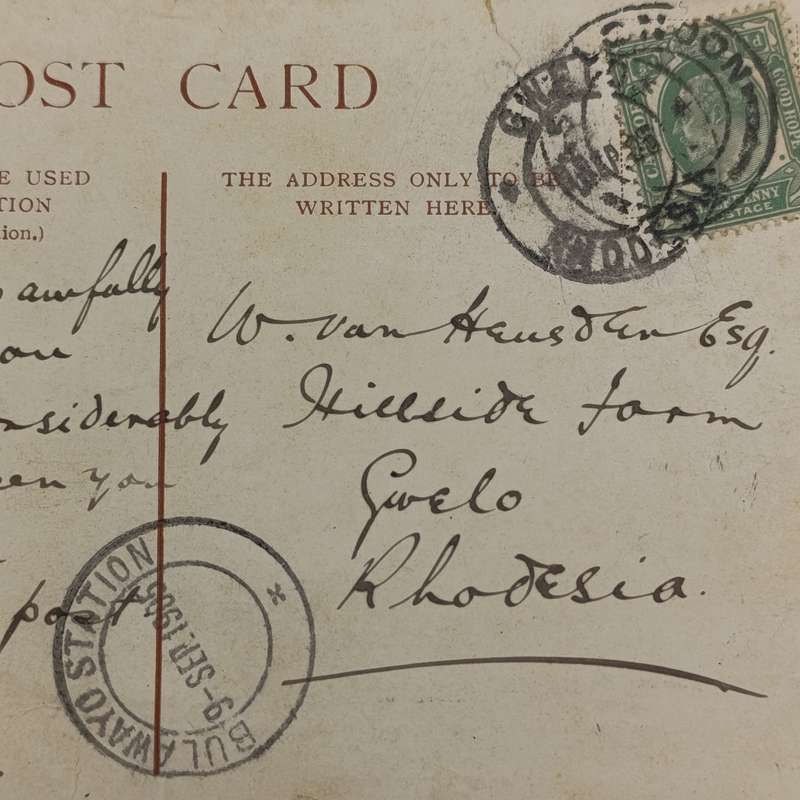 OST CARD
E USED
TION
ion.)
THE ADDRESS ONLY TO BE
WRITTEN HERE.
awfully
you
nsiderably
een you
post
W. van Heusden Esq.
Hillside Farm
Gwelo
Rhodesia.
BULAWAYO STATION
9-SEP.1905
GOOD HOPE
PENNY
POSTAGE
RHODESIA